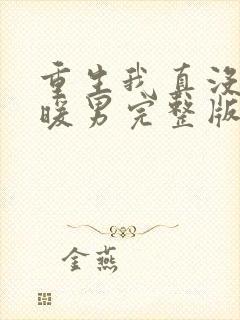 重生我真没
暖男完整版
金燕